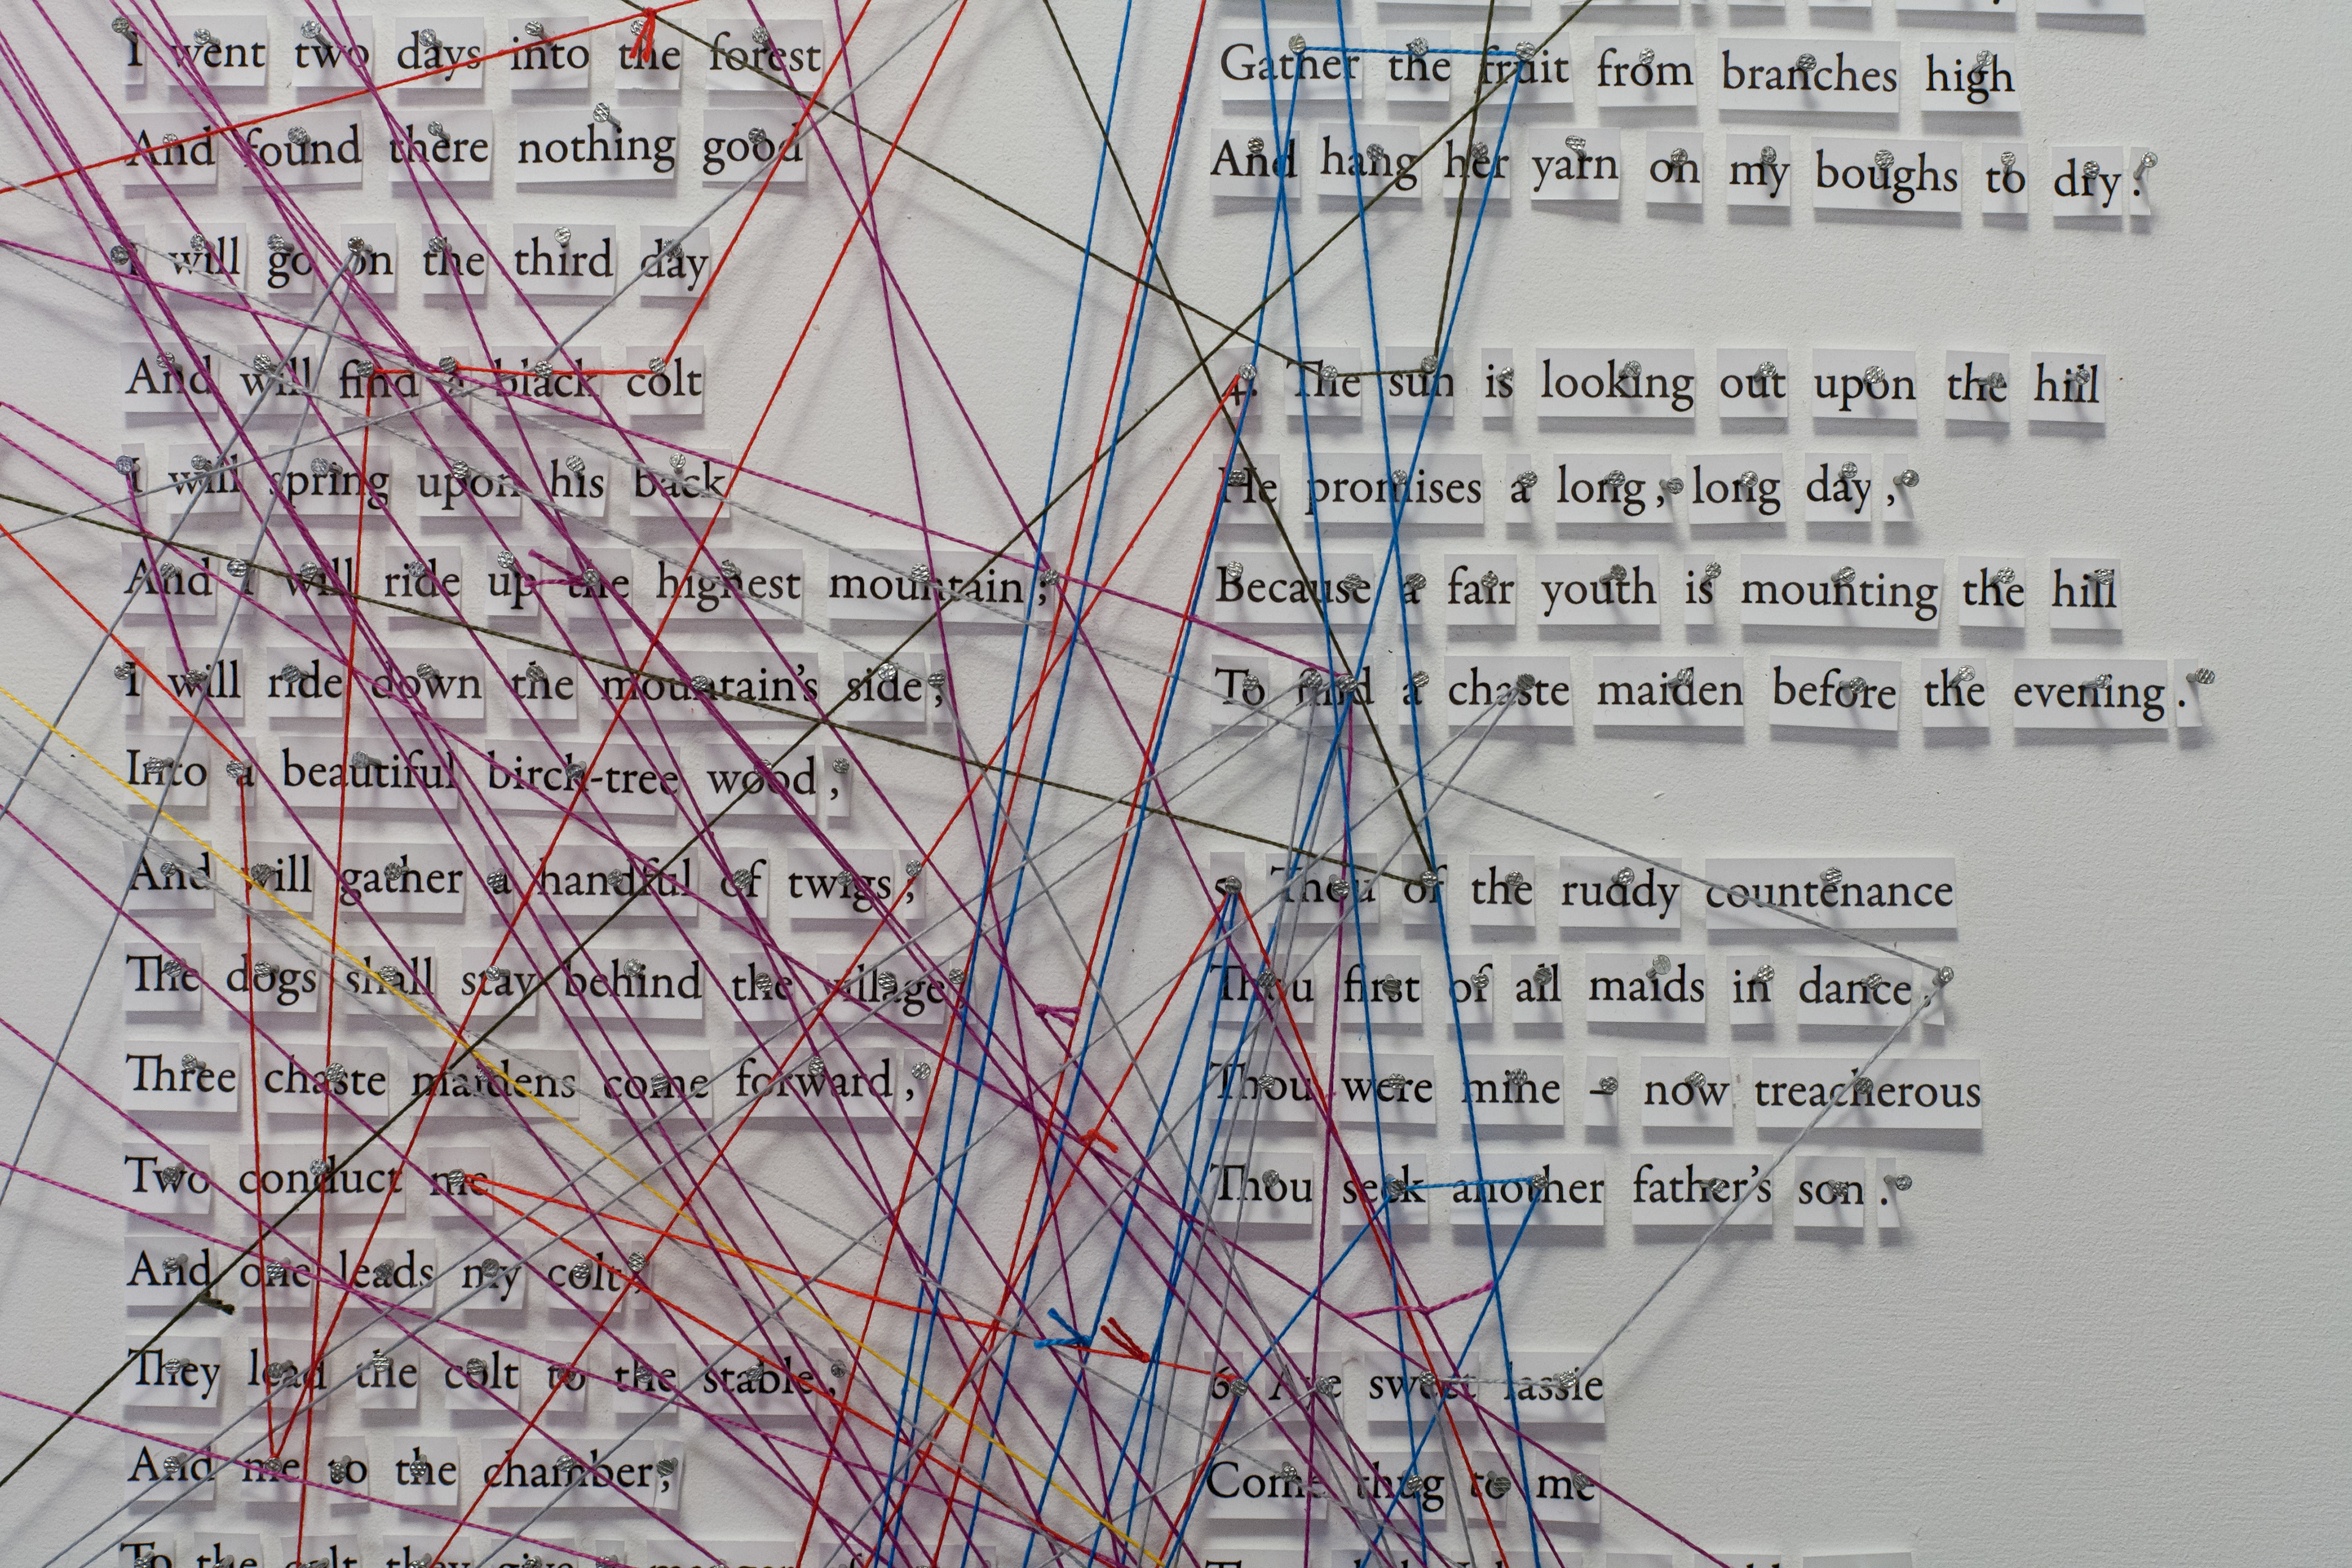 I went two days into the forest
And found there nothing good
I will go on the third day
And will find a black colt
I will spring upon his back
And I will ride up the highest mountain ;
I will ride down the mountain's side ;
Into a beautiful birch-tree wood ,
And will gather a handful of twigs ,
The dogs shall stay behind the village
Three chaste maidens come forward ,
Two conduct me
And one leads my colt ,
They lead the colt to the stable ,
And me to the chamber ;
To the colt they give
Gather the fruit from branches high
And hang her yarn on my boughs to dry .
4. The sun is looking out upon the hill
He promises a long , long day ,
Because a fair youth is mounting the hill
To find a chaste maiden before the evening .
5. Thou of the ruddy countenance
Thou first of all maids in dance ,
Thou were mine – now treacherous
Thou seek another father's son .
6. Are sweet lassie
Come thug to me